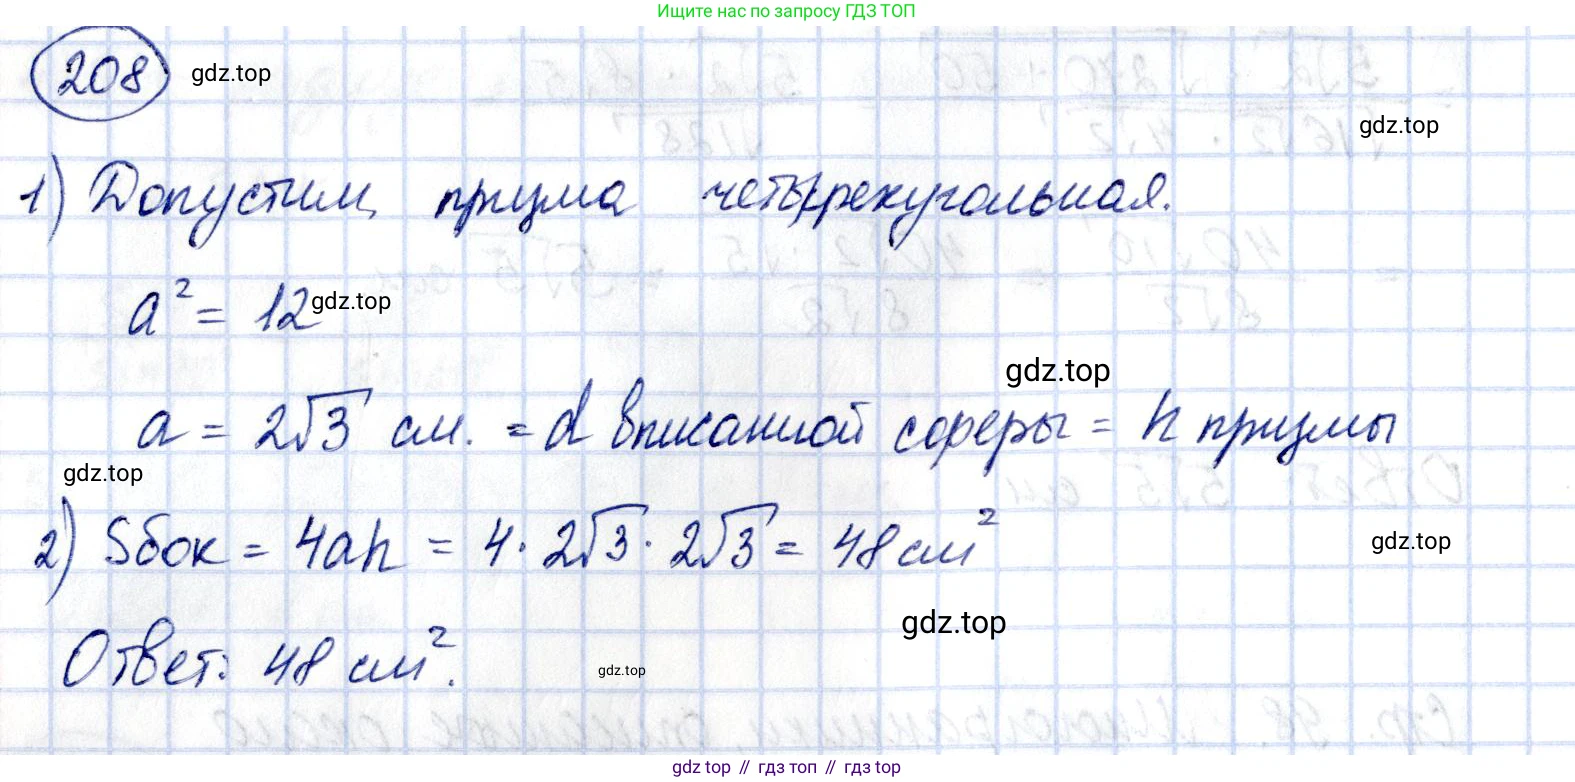 Ищите нас по запросу ГДЗ ТОП
208 gdz.top
gdz.top
1) Допустим, призма четырехугольная.
a² = 12 gdz.top
gdz.top
a = 2√3 см. = d вписанной сферы = h призмы
gdz.top
2) Sбок = 4ah = 4 · 2√3 · 2√3 = 48 см²
gdz.top
gdz.top
Ответ: 48 см².
gdz.top
gdz top // гдз топ // гдз top